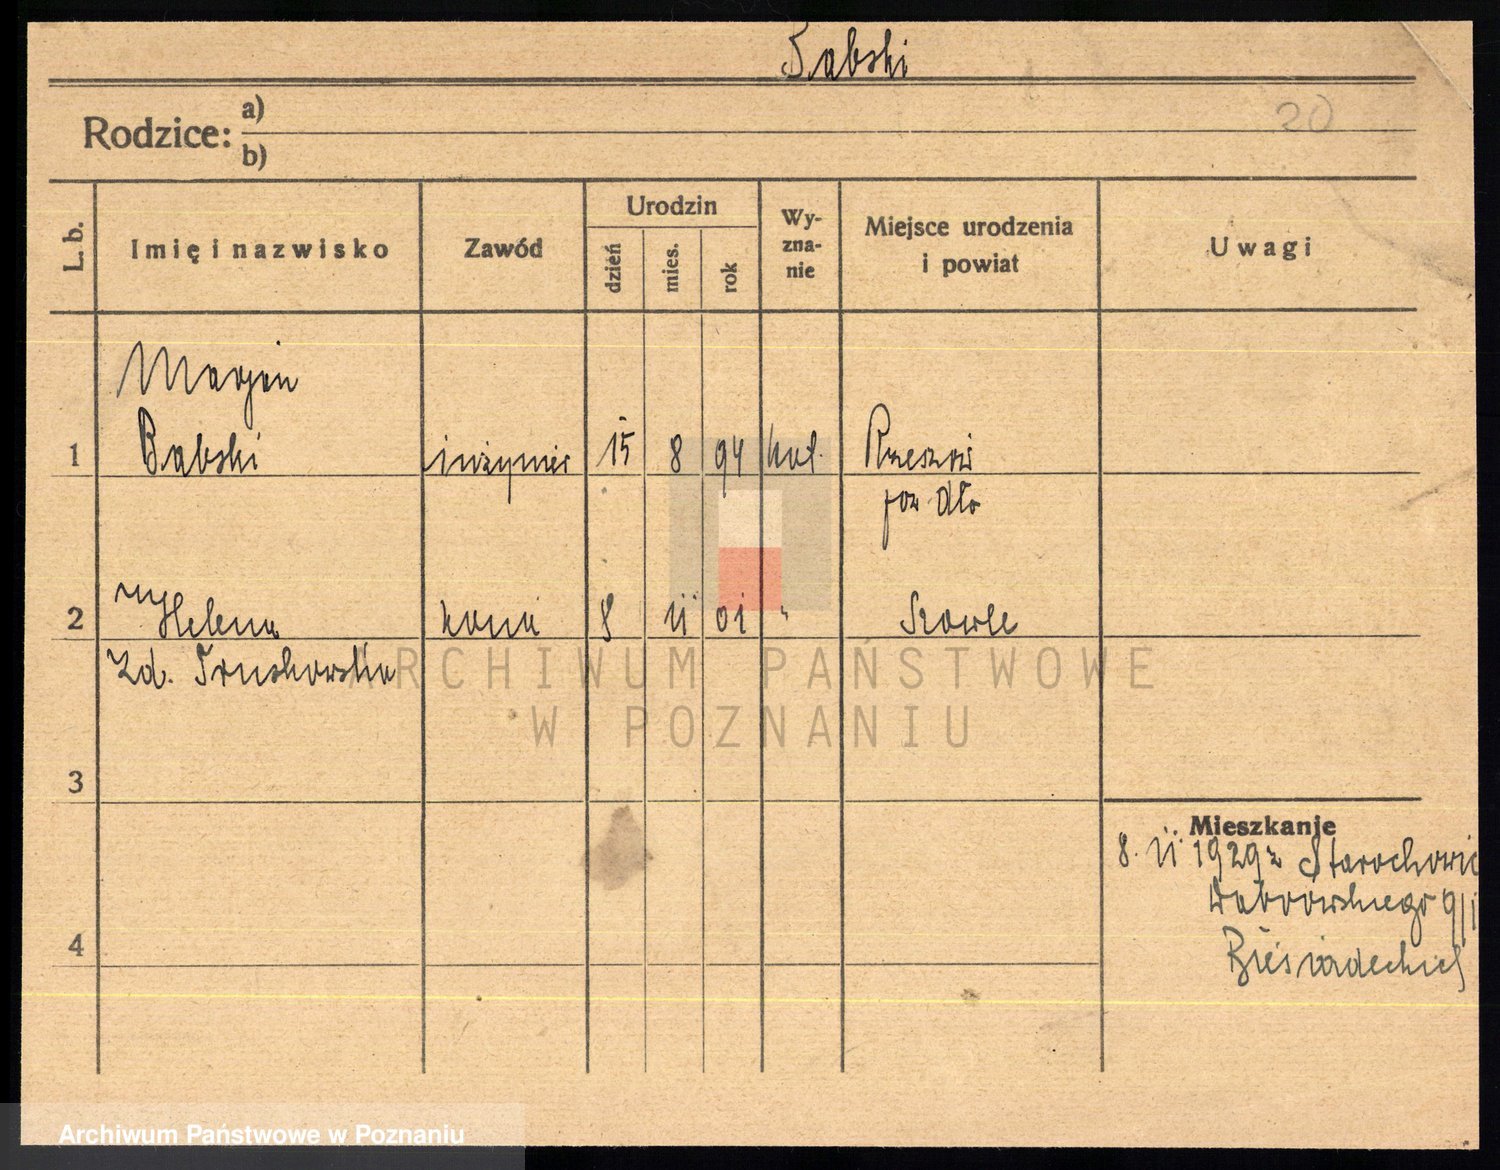 Babski
20
Rodzice: a)
b)
L. b. Imię i nazwisko Zawód Urodzin dzień mies. rok Wyznanie Miejsce urodzenia i powiat Uwagi
Marjan
1 Babski inżynier 15 8 94 kat. Rzeszów
pow dło
2 Helena żona 8 11 01 "
zd. Truskowska
3
Mieszkanie
8. 11. 1929 z Starochowic
Dąbrowskiego 9/1
4 Biesiadeckich
ARCHIWUM PAŃSTWOWE
W POZNANIU
Archiwum Państwowe w Poznaniu